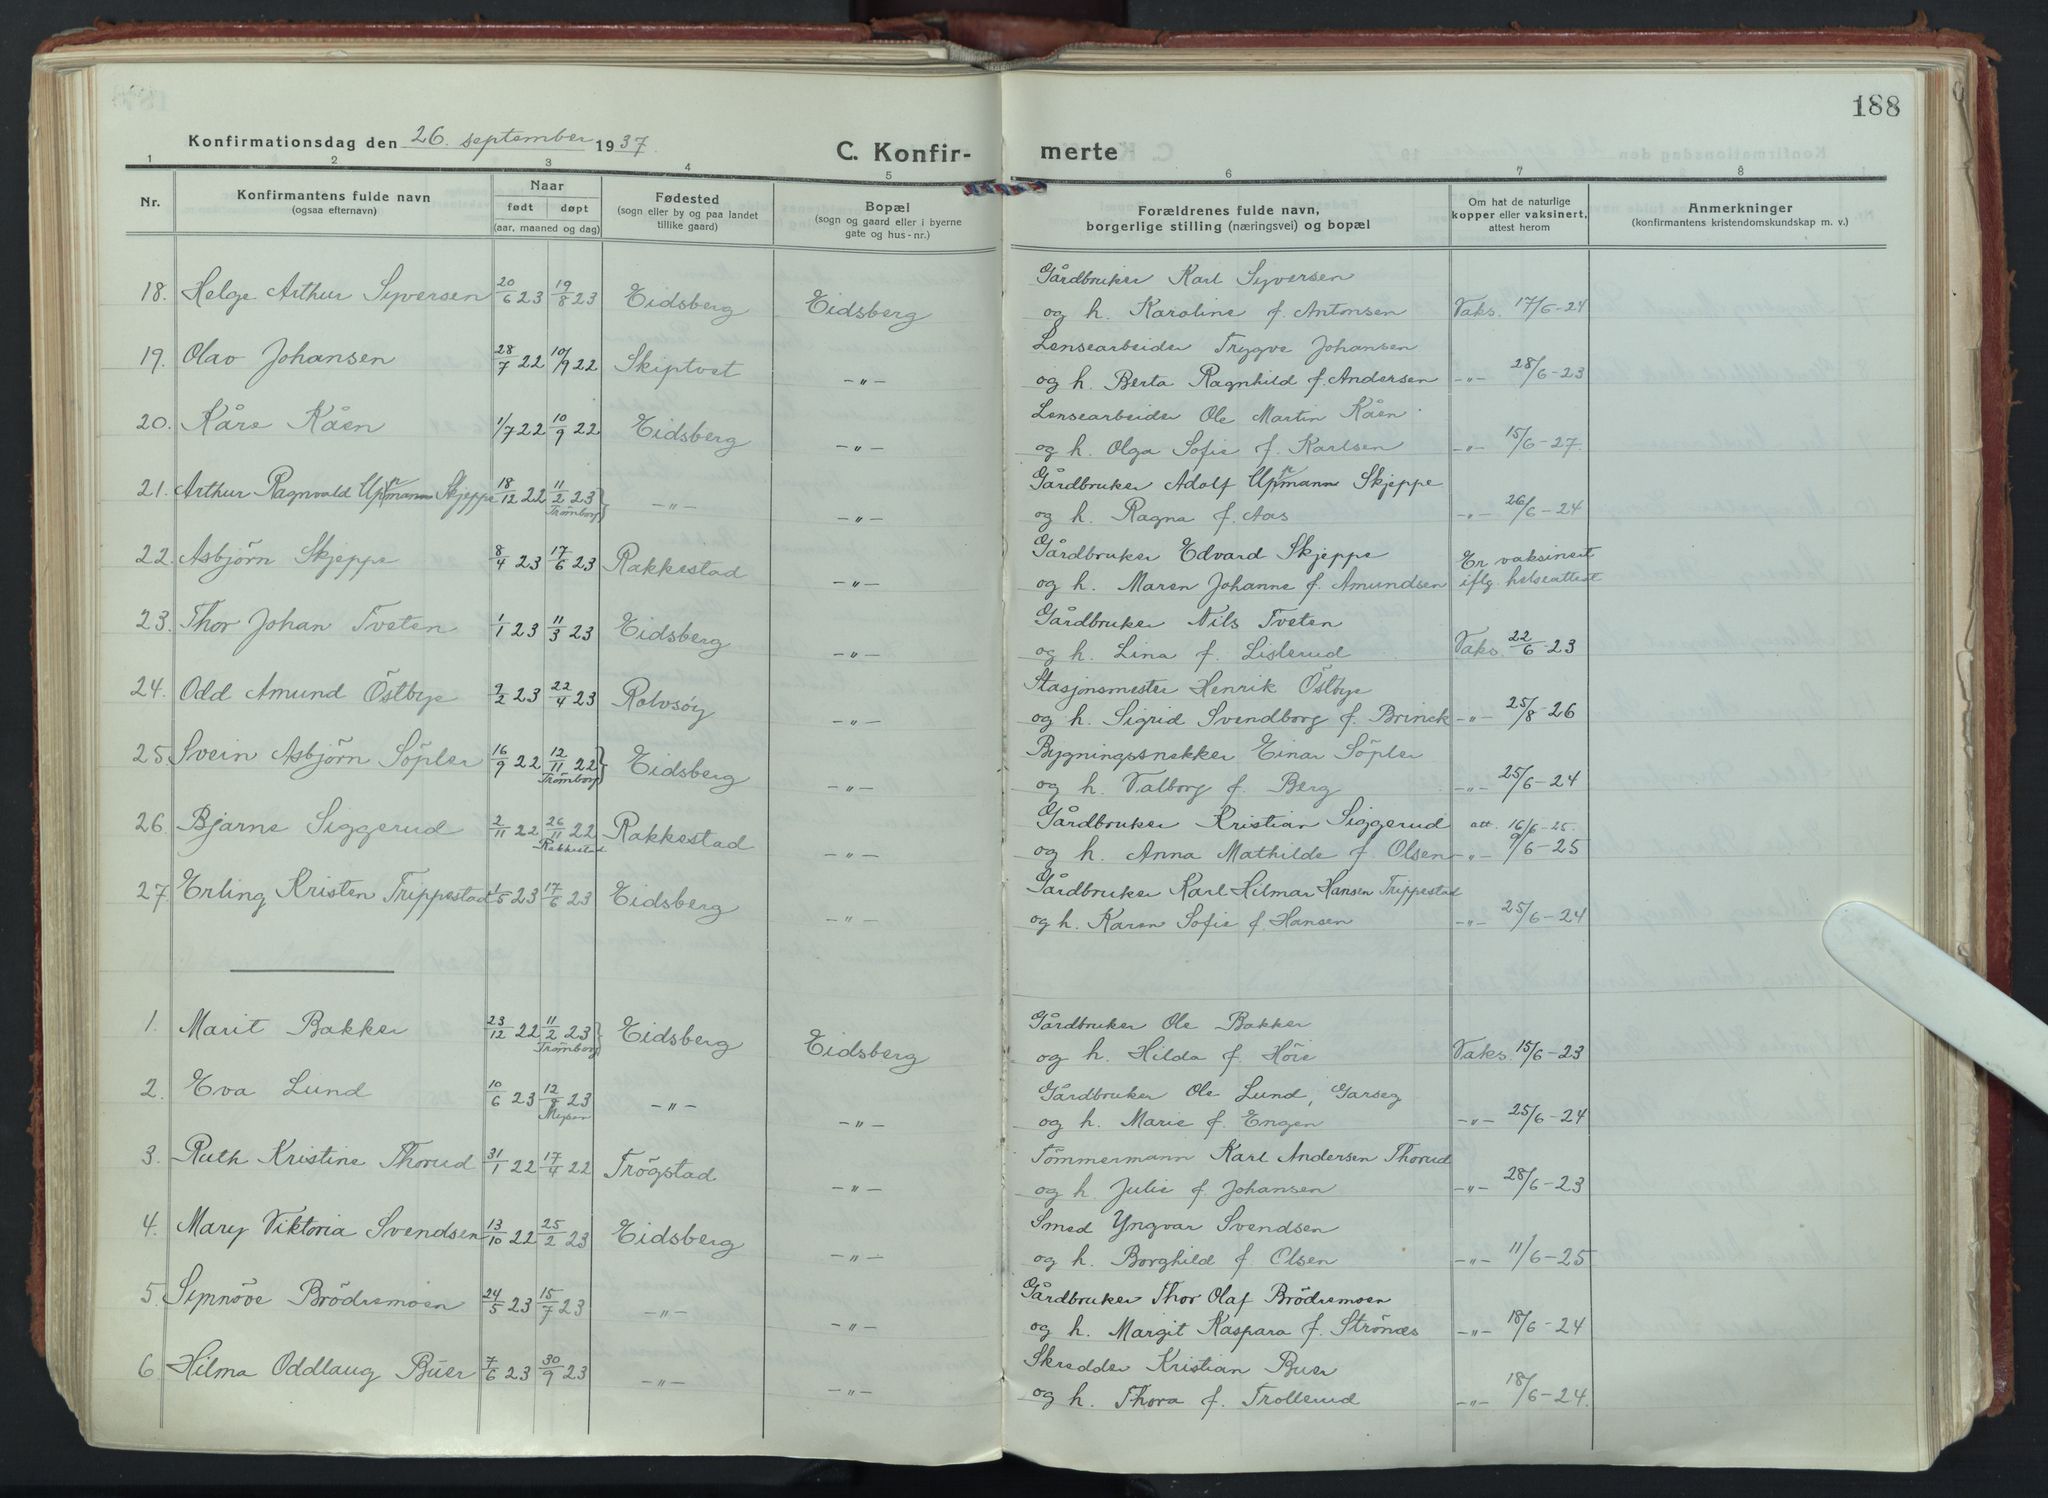 188
Konfirmationsdag den 26. september 1937.
C. Konfir- merte
1 2 3 4 5 6 7 8
Nr.
Konfirmantens fulde navn
(ogsaa efternavn)
Naar
født døpt
(aar, maaned og dag)
Fødested
(sogn eller by og paa landet
tillike gaard)
Bopæl
(sogn og gaard eller i byerne
gate og hus-nr.)
Forældrenes fulde navn,
borgerlige stilling (næringsvei) og bopæl
Om hat de naturlige
kopper eller vaksinert,
attest herom
Anmerkninger
(konfirmantens kristendomskundskap m. v.)
18. Helge Arthur Syversen 20/6 23 19/8 23 Eidsberg Eidsberg Gårdbruker Karl Syversen
og h. Karoline f. Antonsen Vaks. 17/6-24
19. Olav Johansen 28/7 22 10/9 22 Skiptvet -"- Lensearbeider Trygve Johansen
og h. Berta Ragnhild f. Andersen -"- 28/6-23
20. Kåre Kåen 1/7 22 10/9 22 Eidsberg -"- Lensearbeider Ole Martin Kåen
og h. Olga Sofie f. Karlsen -"- 15/6-27.
21. Arthur Ragnvald Skjeppe 18/12 22 11/2 23 Trømborg } -"- -"- Gårdbruker Adolf Skjeppe
og h. Ragna f. Aas -"- 26/6-24
22. Asbjörn Skjeppe 8/4 23 17/6 23 Rakkestad -"- Gårdbruker Edvard Skjeppe Er vaksinert
og h. Maren Johanne f. Amundsen iflg. helseattest
23. Thor Johan Tveten 1/1 23 11/3 23 Eidsberg -"- Gårdbruker Nils Tveten
og h. Lina f. Lislerud Vaks. 22/6-23
24. Odd Amund Östbye 9/2 23 22/4 23 Rolvsöy -"- Stasjonsmester Henrik Östbye
og h. Sigrid Svendborg f. Brinck -"- 25/8-26
25. Svein Asbjörn Söpler 16/9 22 12/11 22 Trömborg } Eidsberg -"- Bygningssnekker Einar Söpler
og h. Valborg f. Berg -"- 25/6-24
26. Bjarne Siggerud 2/11 22 26/11 22 Rakkestad Rakkestad -"- Gårdbruker Kristian Siggerud att. 16/6-25.
og h. Anna Mathilde f. Olsen -"- 9/6-25
27. Erling Kristen Trippestad 1/5 23 17/6 23 Eidsberg -"- Gårdbruker Karl Hilmar Hansen Trippestad
og h. Karen Sofie f. Hansen -"- 25/6-24
1. Marit Bakker 23/12 22 11/2 23 Trömborg } Eidsberg Eidsberg Gårdbruker Ole Bakker
og h. Hilda f. Höie Vaks. 15/6-23
2. Eva Lund 10/6 23 12/8 23 Mysen -"- -"- Gårdbruker Ole Lund, Garseg
og h. Marie f. Engen -"- 25/6-24
3. Ruth Kristine Thorud 31/1 22 17/4 22 Trögstad -"- Tömmermann Karl Andersen Thorud
og h. Julie f. Johansen -"- 28/6-23
4. Mary Viktoria Svendsen 13/10 22 25/2 23 Eidsberg -"- Smed Yngvar Svendsen
og h. Borghild f. Olsen -"- 11/6-25
5. Synnöve Brödremoen 24/5 23 15/7 23 -"- -"- Gårdbruker Thor Olaf Brödremoen
og h. Margit Kaspara f. Strönæs -"- 18/6-24
6. Hilma Oddlaug Buer 7/6 23 30/9 23 -"- -"- Skredder Kristian Buer
og h. Thora f. Trollerud -"- 18/6-24.